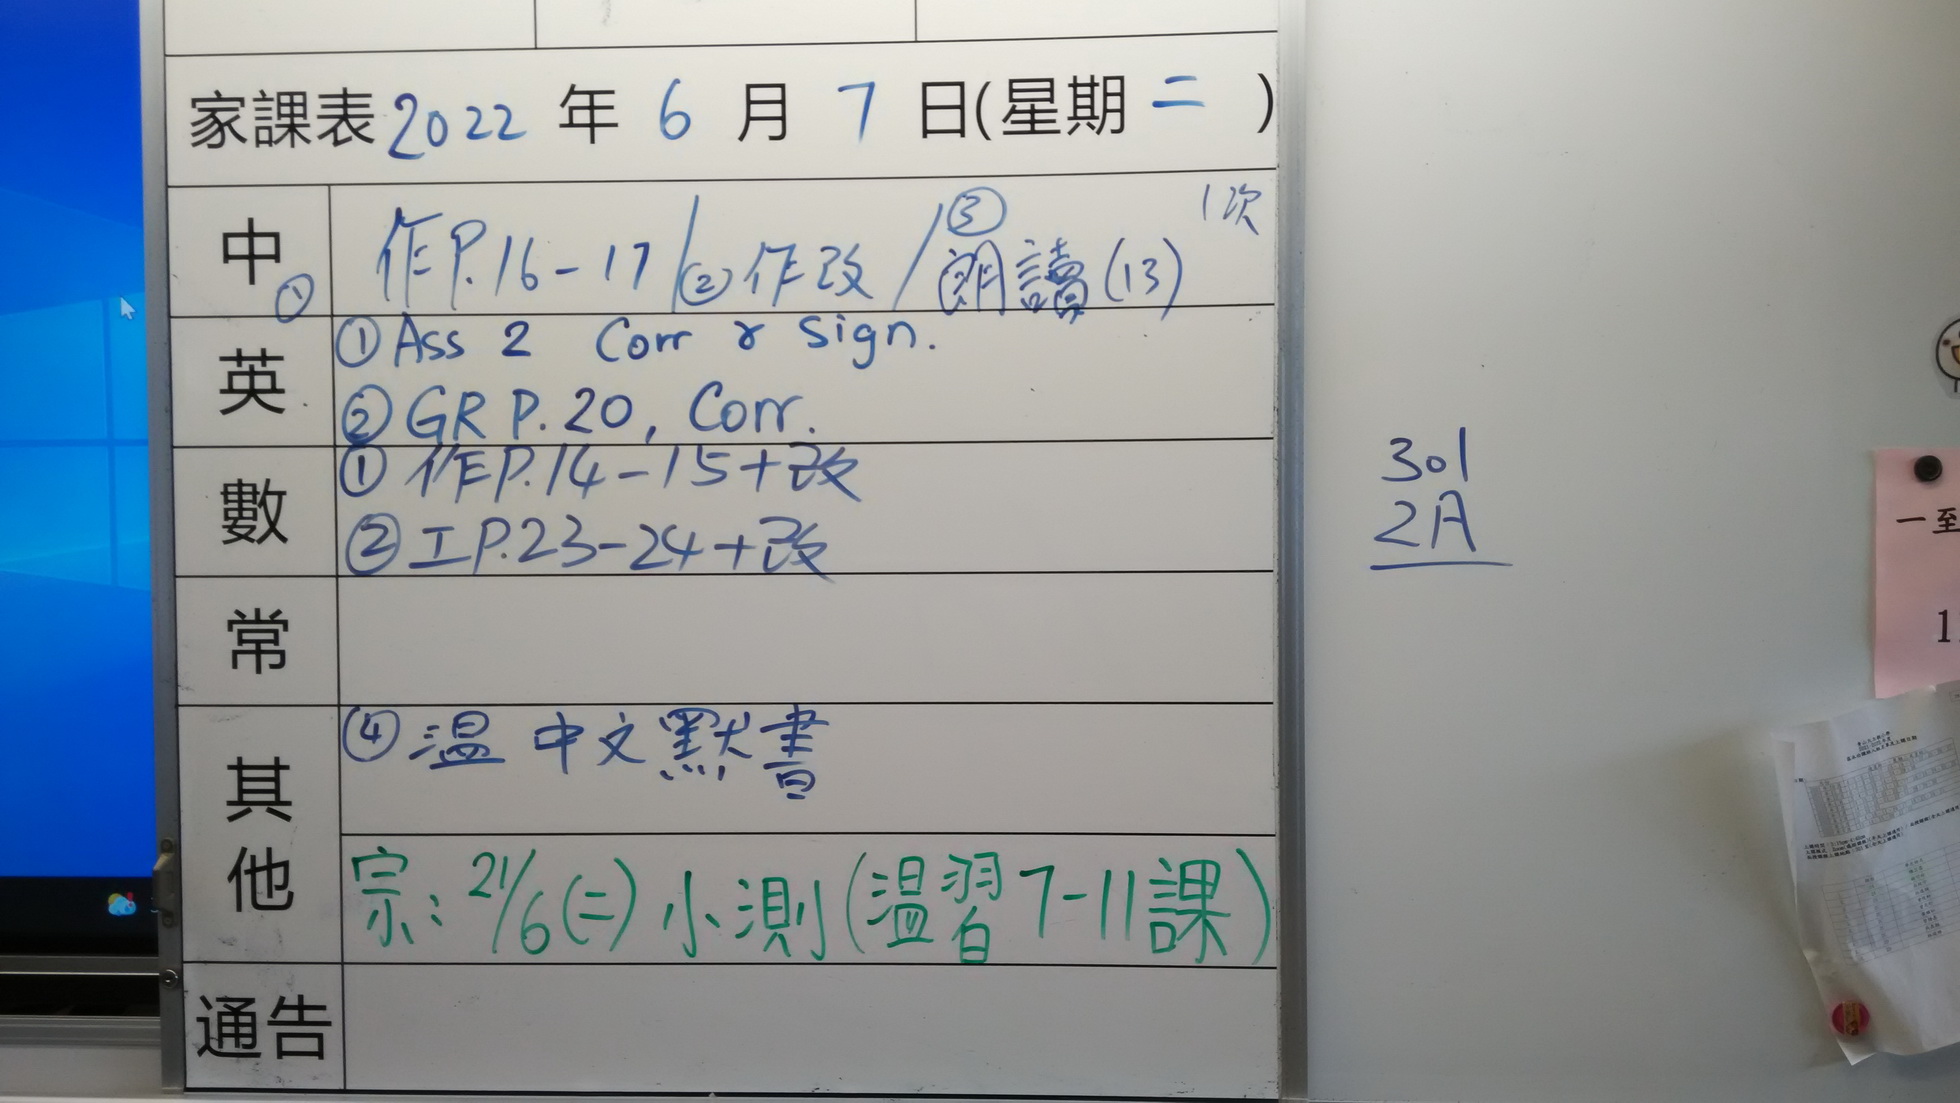 家課表 2022 年 6 月 7 日(星期 二 )
中 ① 作P.16-17/②作改/③朗讀(13) 1次
英 ① Ass 2 Corr & Sign.
② GR P.20, Corr.
數 ① 作P.14-15+改
② 工P.23-24+改
常
其他 ④ 溫 中文默書
宗: 21/6(二) 小測(溫習7-11課)
通告
301
2A
一至
1